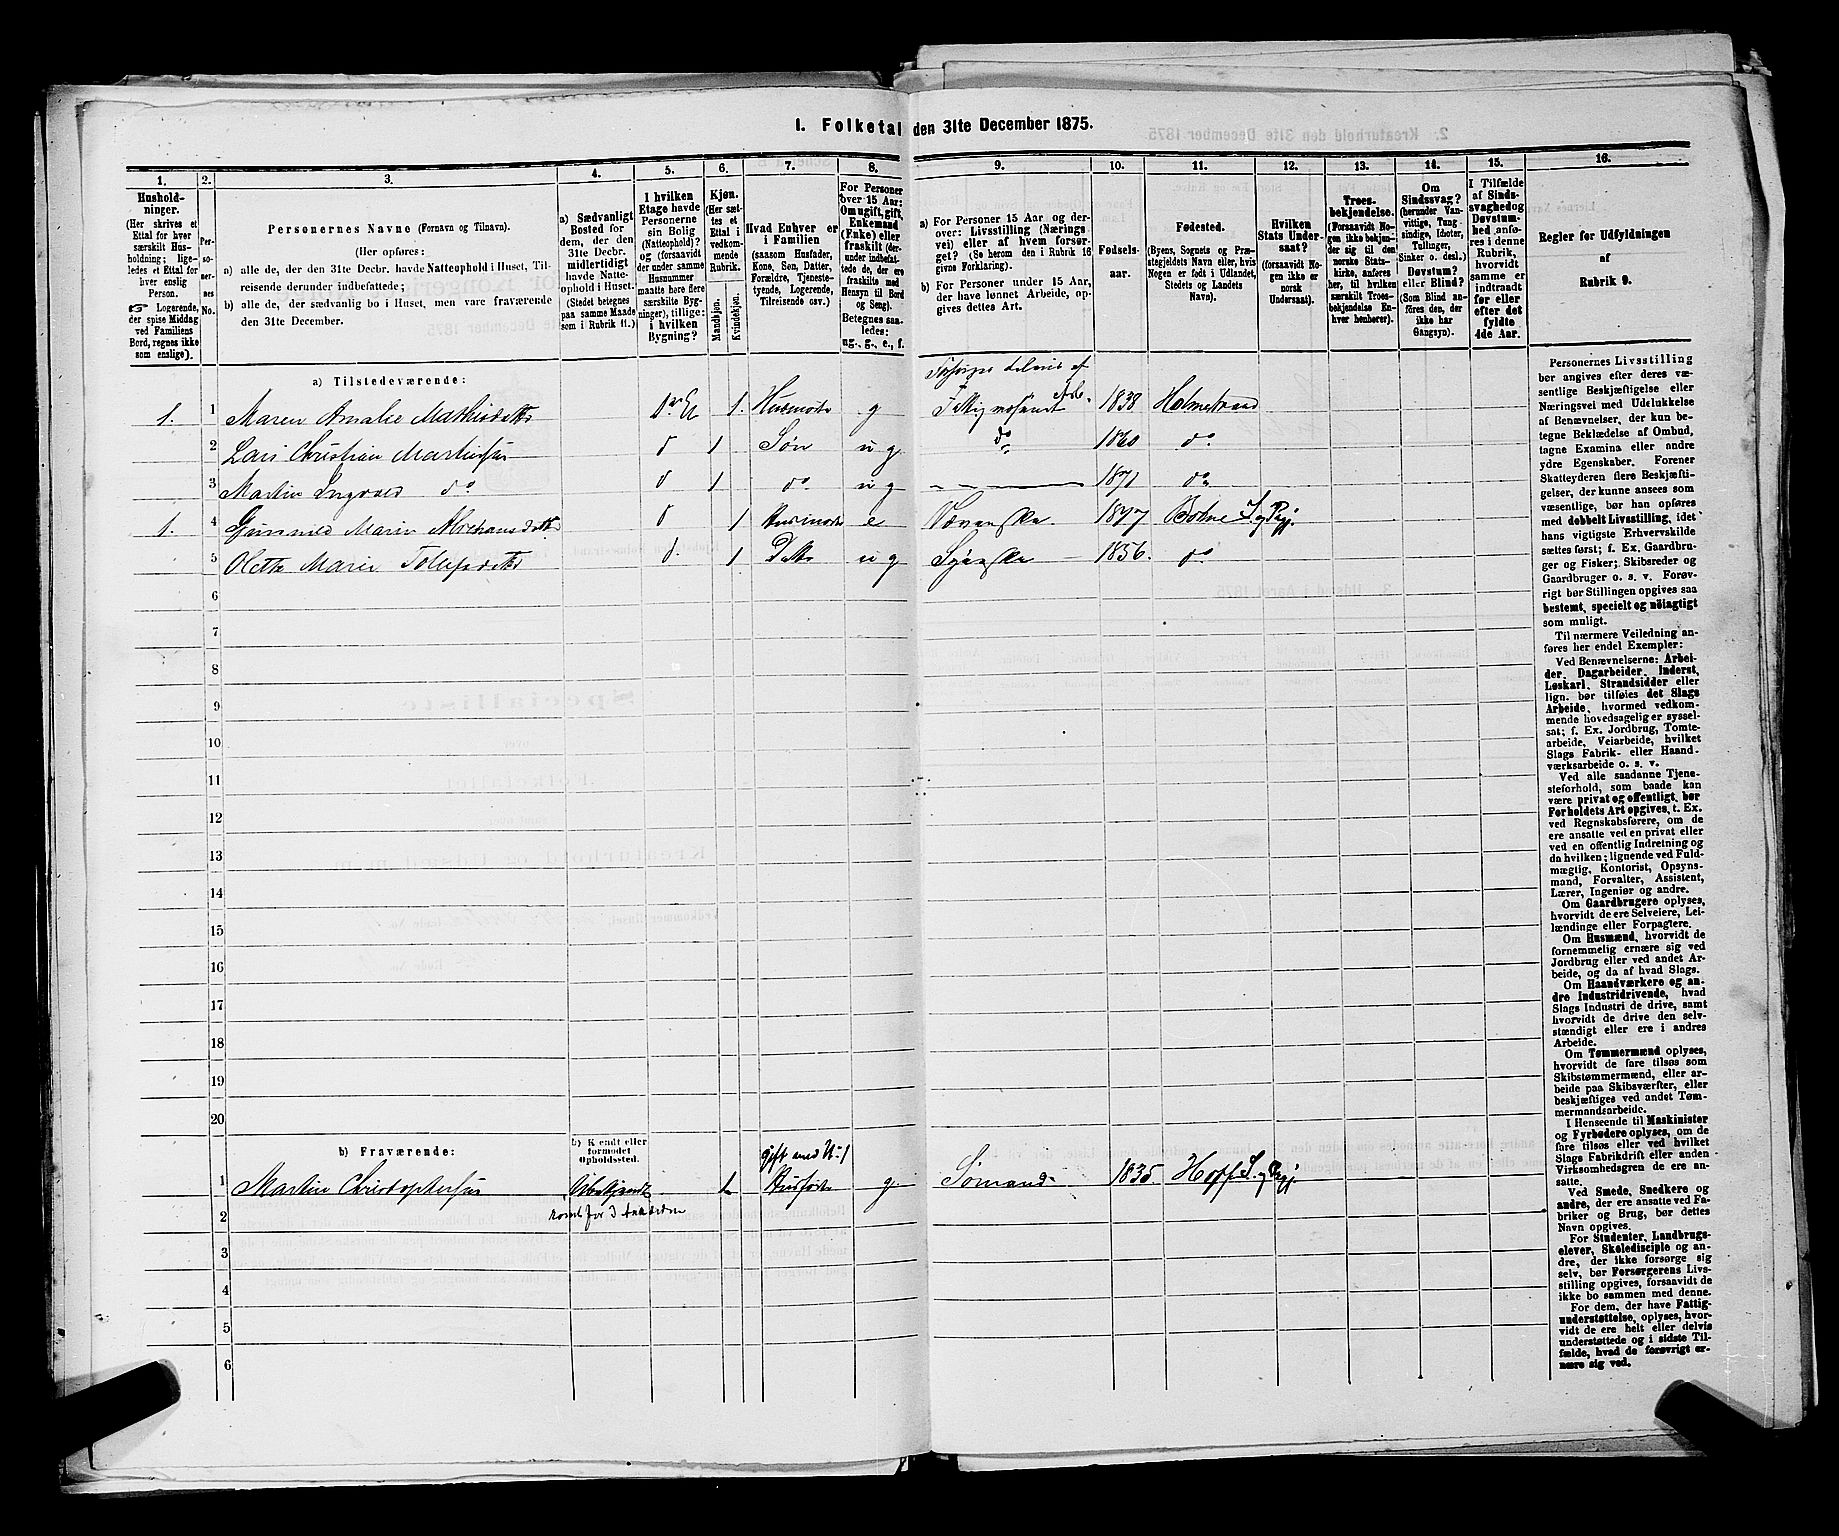 1. Folketal den 31te December 1875.
1.
Hushold-
ninger.
(Her skrives et
Ettal for hver
særskilt Hus-
holdning; lige-
ledes et Ettal for
hver enslig
Person.
☞ Logerende,
der spise Middag
ved Familiens
Bord, regnes ikke
som enslige).
2.
Per-
so-
ner-
nes
No.
3.
Personernes Navne (Fornavn og Tilnavn).
(Her opføres:
a) alle de, der den 31te Decbr. havde Natteophold i Huset, Til-
reisende derunder indbefattede;
b) alle de, der sædvanlig bo i Huset, men vare fraværende
den 31te December.
4.
a) Sædvanligt
Bosted for
dem, der den
31te Decbr.
midlertidigt
havde Natte-
ophold i Huset.
(Stedet betegnes
paa samme Maade
som i Rubrik 11.)
5.
I hvilken
Etage havde
Personerne
sin Bolig
(Natteophold)?
og (forsaavidt
der under samme
Husnummer
maatte høre flere
særskilte Byg-
ninger), tillige:
i hvilken
Bygning?
6.
Kjøn.
(Her sæt-
tes et
Ettal i
vedkom-
mende
Rubrik.
Mandkjøn.
Kvindekjøn.
7.
Hvad Enhver er
i Familien
(saasom Husfader,
Kone, Søn, Datter,
Forældre, Tjeneste-
tyende, Logerende,
Tilreisende osv.)
8.
For Personer
over 15 Aar:
Om ugift, gift,
Enkemand
(Enke) eller
fraskilt (der-
under indbefat-
tede de, der ere
fraskilte med
Hensyn til Bord
og Seng).
Betegnes saa-
ledes:
ug., g., e., f.
9.
a) For Personer 15 Aar og der-
over: Livsstilling (Nærings-
vei) eller af hvem forsør-
get? (Se herom den i Rubrik 16
givne Forklaring).
b) For Personer under 15 Aar,
der have lønnet Arbeide, op-
gives dettes Art.
10.
Fødsels-
aar.
11.
Fødested.
(Byens, Sognets og Præ-
stegjeldets Navn eller, hvis
Nogen er født i Udlandet,
Stedets og Landets
Navn).
12.
Hvilken
Stats Under-
saat?
(forsaavidt No-
gen ikke er
norsk
Undersaat).
13.
Troes-
bekjendelse.
(Forsaavidt No-
gen ikke bekjen-
der sig til den
norske Stats-
kirke, anføres
her, til hvilken
særskilt Troes-
bekjendelse En-
hver henhører).
14.
Om
Sindssvag?
(herunder Van-
vittige, Tung-
sindige, Idioter,
Tullinger,
Sinker o. desl.)
Døvstum?
eller Blind?
(Som Blind an-
føres den, der
ikke har
Gangsyn).
15.
I Tilfælde
af Sinds-
svaghed og
Døvstum-
hed, anfø-
res i denne
Rubrik,
hvorvidt
samme er
indtraadt
før eller
efter det
fyldte
4de Aar.
16.
Regler for Udfyldningen
af
Rubrik 9.
a) Tilstedeværende:
Forsørges delvis af
1. 1 Maren Amalie Mathisdatter 1ste Et 1. Husmoder g Fattigvæsenet 1838 Holmestrand
2 Lars Christian Martinsen d 1 Søn ug do 1860 do
3 Martin Ingvald do d 1 do ug 1871 do
1. 4 Gunnild Marie d 1 Husmoder e Væverske 1817 Botne S. og Pgj.
5 Olette Marie Tollefsdatter d. 1 Datter ug Syerske 1856. do
6
7
8
9
10
11
12
13
14
15
16
17
18
19
20
b) Fraværende:
b) Kjendt eller
formodet
Opholdssted.
gift med No 1
1 Martin Christophersen Ubekjendt 1 Husfader g Sømand 1835 Hoff S. og Pgj
reist for 3 Aar siden
2
3
4
5
6
Personernes Livsstilling
bør angives efter deres væ-
sentlige Beskjæftigelse eller
Næringsvei med Udelukkelse
af Benævnelser, der kun be-
tegne Beklædelse af Ombud,
tagne Examina eller andre
ydre Egenskaber. Forener
Skatteyderen flere Beskjæfti-
gelser, der kunne ansees som
væsentlige, bør han opføres
med dobbelt Livsstilling, idet
hans vigtigste Erhvervskilde
sættes først; f. Ex. Gaardbru-
ger og Fisker; Skibsreder og
Gaardbruger o. s. v. Forøv-
rigt bør Stillingen opgives saa
bestemt, specielt og nöiagtigt
som muligt.
Til nærmere Veiledning an-
føres her endel Exempler:
Ved Benævnelserne: Arbei-
der, Dagarbeider, Inderst,
Løskarl, Strandsidder eller
lign. bør tilføies det Slags
Arbeide, hvormed vedkom-
mende hovedsagelig er syssel-
sat; f. Ex. Jordbrug, Tomte-
arbeide, Veiarbeide, hvilket
Slags Fabrik- eller Haand-
værksarbeide o. s. v.
Ved alle saadanne Tjene-
steforhold, som baade kan
være privat og offentligt, bør
Forholdets Art opgives, t. Ex.
ved Regnskabsførere, om de
ere ansatte ved en privat eller
ved en offentlig Indretning og
da hvilken; lignende ved Fuld-
mægtig, Kontorist, Opsyns-
mand, Forvalter, Assistent,
Lærer, Ingeniør og andre.
Om Gaardbrugere oplyses,
hvorvidt de ere Selveiere, Lei-
lændinge eller Forpagtere.
Om Husmænd, hvorvidt de
fornemmelig ernære sig ved
Jordbrug eller ved andet Ar-
beide, og da af hvad Slags.
Om Haandværkere og an-
dre Industridrivende, hvad
Slags Industri de drive, samt
hvorvidt de drive den selv-
stændigt eller ere i andres
Arbeide.
Om Tømmermænd oplyses,
hvorvidt de fare tilsøs som
Skibstømmermænd, eller ar-
beide paa Skibsværfter, eller
beskjæftiges ved andet Tøm-
mermandsarbeide.
I Henseende til Maskinister
og Fyrbødere oplyses, om de
fare tilsøs eller ved hvilket
Slags Fabrikdrift eller anden
Virksomhedsgren de ere an-
satte.
Ved Smede, Snedkere og
andre, der ere ansatte ved Fa-
briker og Brug, bør dettes
Navn opgives.
For Studenter, Landbrugs-
elever, Skoledisciple og an-
dre, der ikke forsørge sig
selv, bør Forsørgerens Livs-
stilling opgives, forsaavidt de
ikke bo sammen med denne.
For dem, der have Fattig-
understøttelse, oplyses, hvor-
vidt de ere helt eller delvis
understøttede og i sidste Til-
fælde, hvad de forøvrigt er-
nære sig ved.